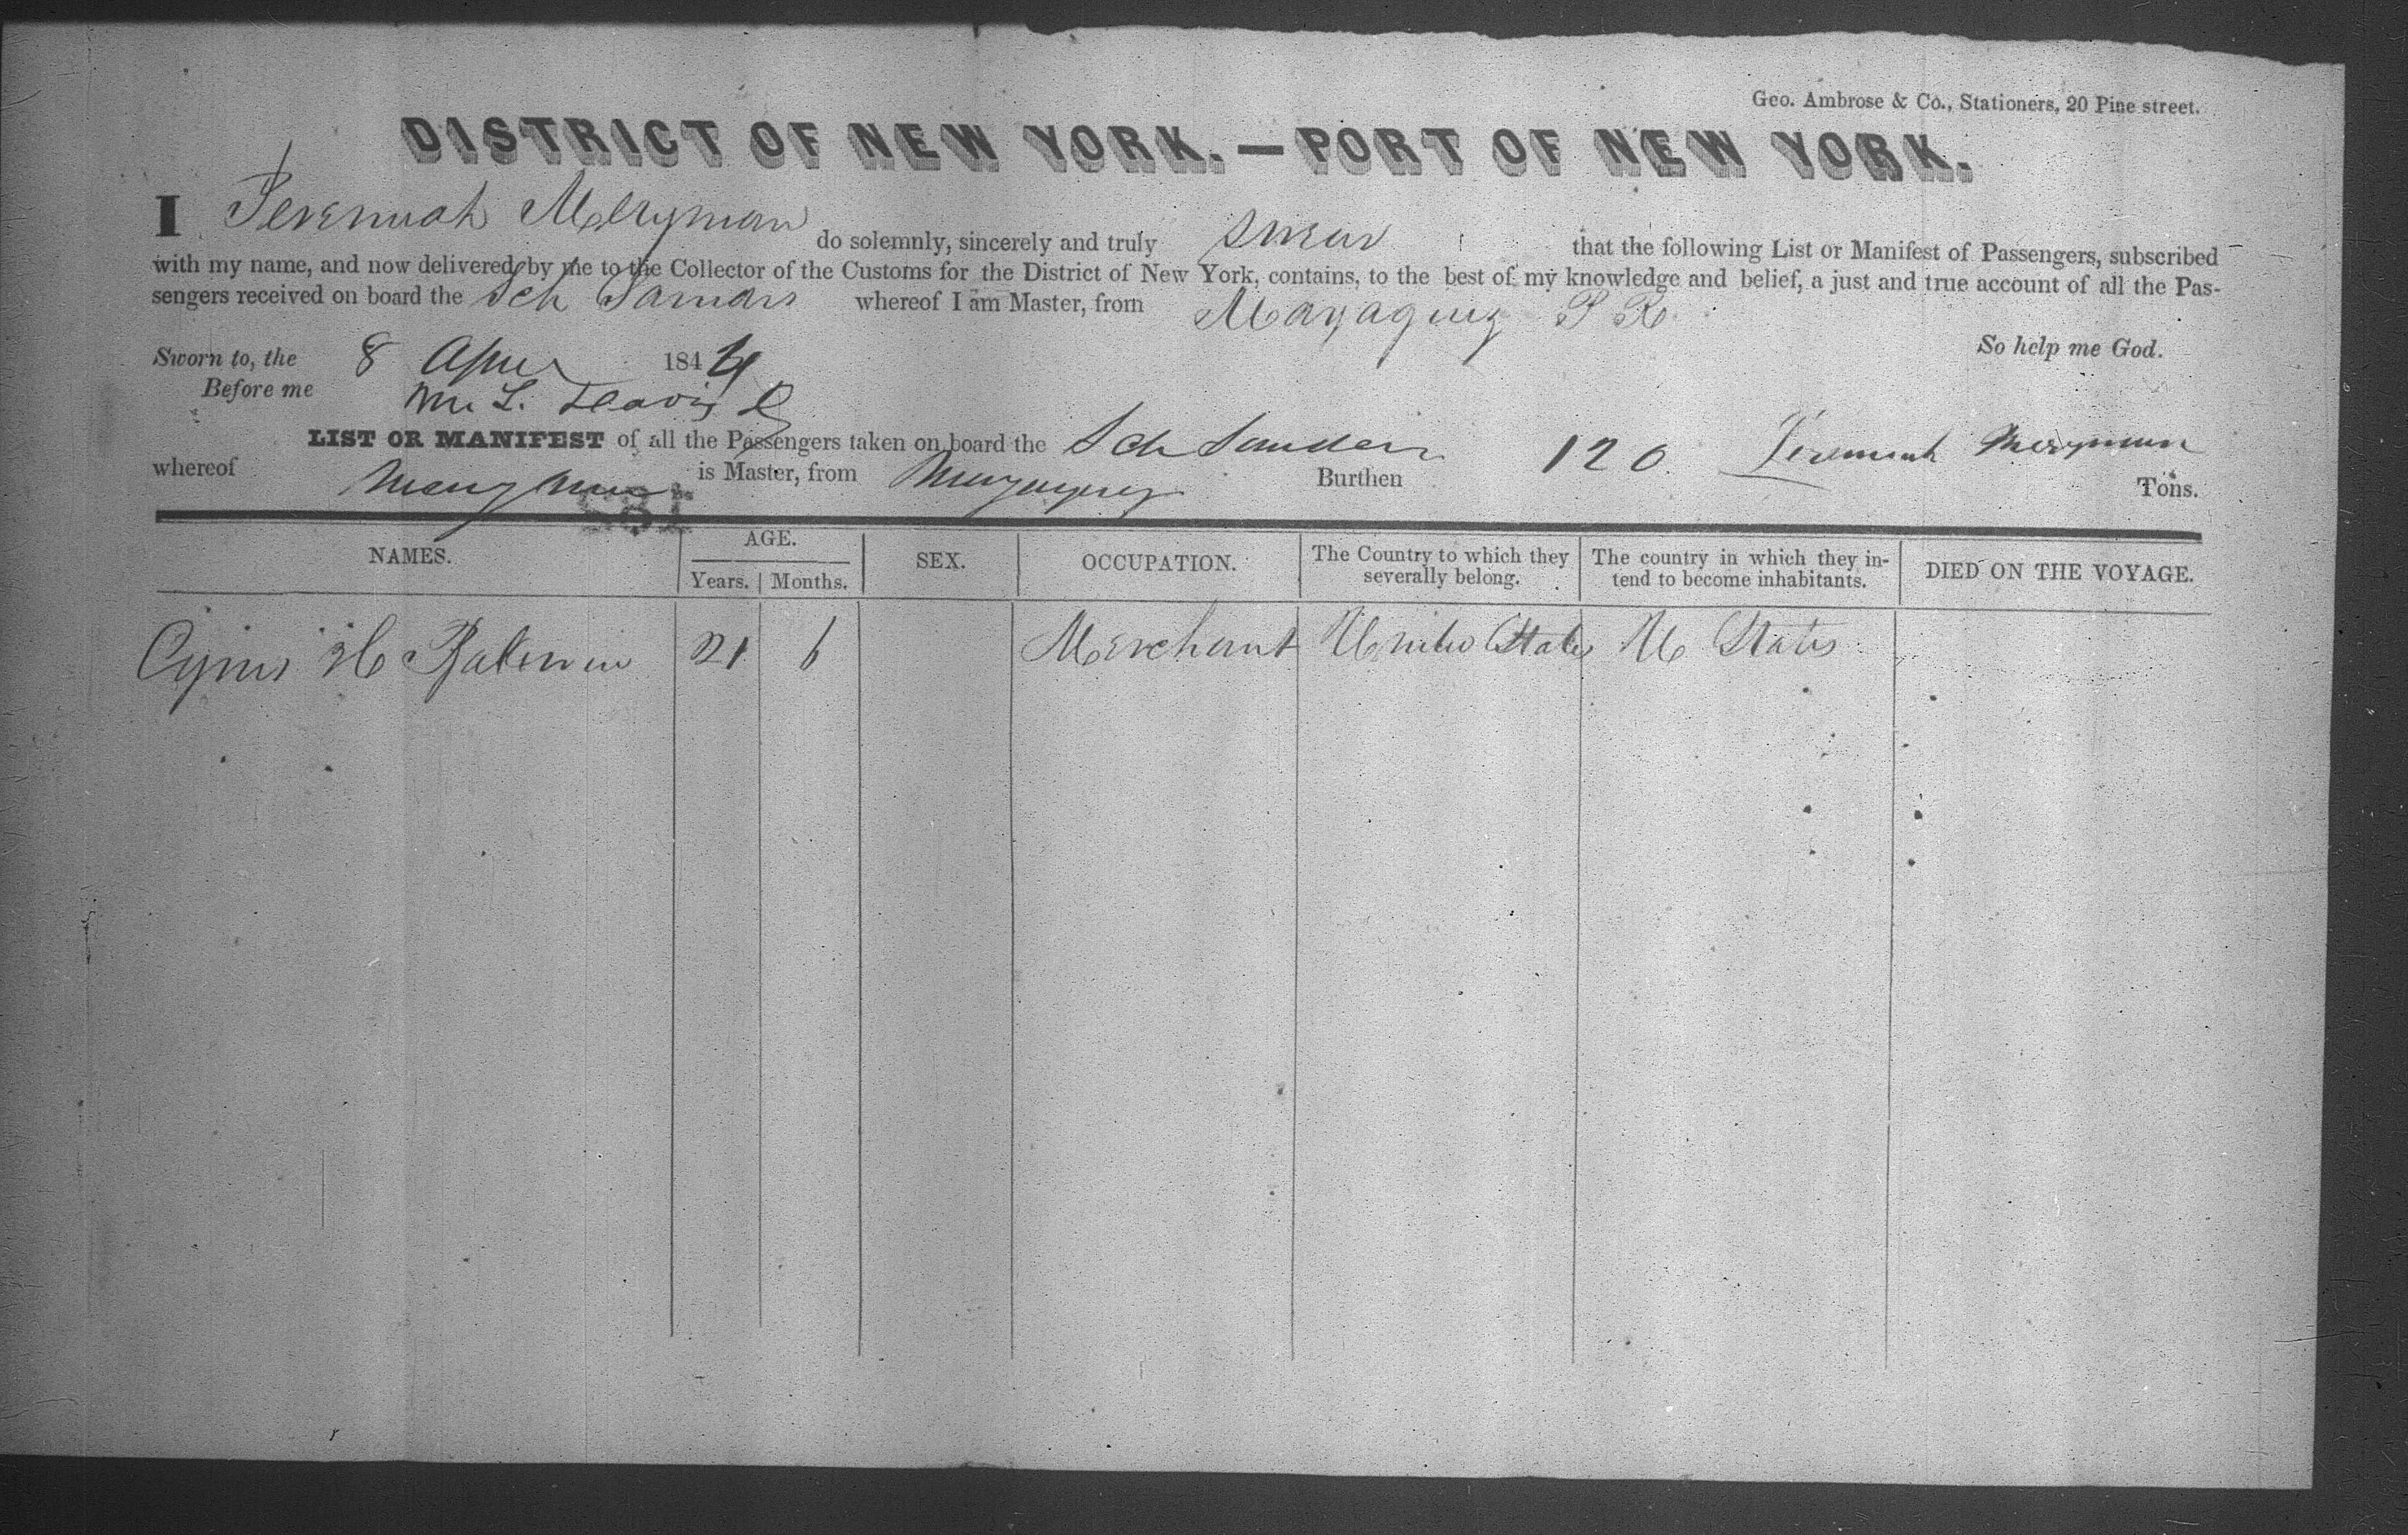 Geo. Ambrose & Co., Stationers, 20 Pine street.
DISTRICT OF NEW YORK.—PORT OF NEW YORK.
I Jeremiah Merryman do solemnly, sincerely and truly swear that the following List or Manifest of Passengers, subscribed
with my name, and now delivered by me to the Collector of the Customs for the District of New York, contains, to the best of my knowledge and belief, a just and true account of all the Pas-
sengers received on board the Sch whereof I am Master, from Mayaguez P R
So help me God.
Sworn to, the 8 April 184
Before me
LIST OR MANIFEST of all the Passengers taken on board the Sch 120 Jeremiah Merryman
whereof Merryman is Master, from Mayaguez Burthen Tons.
NAMES. AGE. Years. Months. SEX. OCCUPATION. The Country to which they severally belong. The country in which they in-tend to become inhabitants. DIED ON THE VOYAGE.
Cyrus H Baldwin 21 6 Merchant United States U States